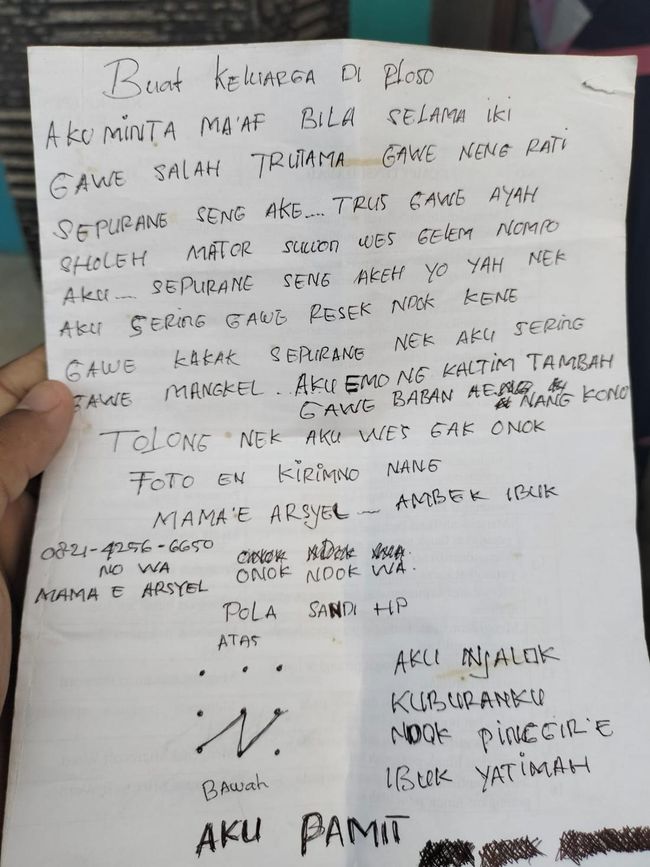 Buat KELUARGA DI PLOSO
AKU MINTA MA'AF BILA SELAMA IKI
GAWE SALAH TRUTAMA GAWE NENG RATI
SEPURANE SENG AKE.... TRUS GAWE AYAH
SHOLEH MATOR SUWON WES GELEM NOMPO
AKU.... SEPURANE SENG AKEH YO YAH NEK
AKU SERING GAWE RESEK NDOK KENE
GAWE KAKAK SEPURANE NEK AKU SERING
GAWE MANGKEL... AKU EMO NG KALTIM TAMBAH
GAWE BABAN AE NANG KONO
TOLONG NEK AKU WES GAK ONOK
FOTO EN KIRIMNO NANG
MAMA'E ARSYEL .... AMBEK IBUK
0821-4256-6650
NO WA ONOK NDOK WA.
MAMA E ARSYEL
POLA SANDI HP
ATAS
AKU NJALOK
KUBURANKU
NDOK PINGGIR'E
IBUK YATIMAH
BAWAH
AKU PAMIT